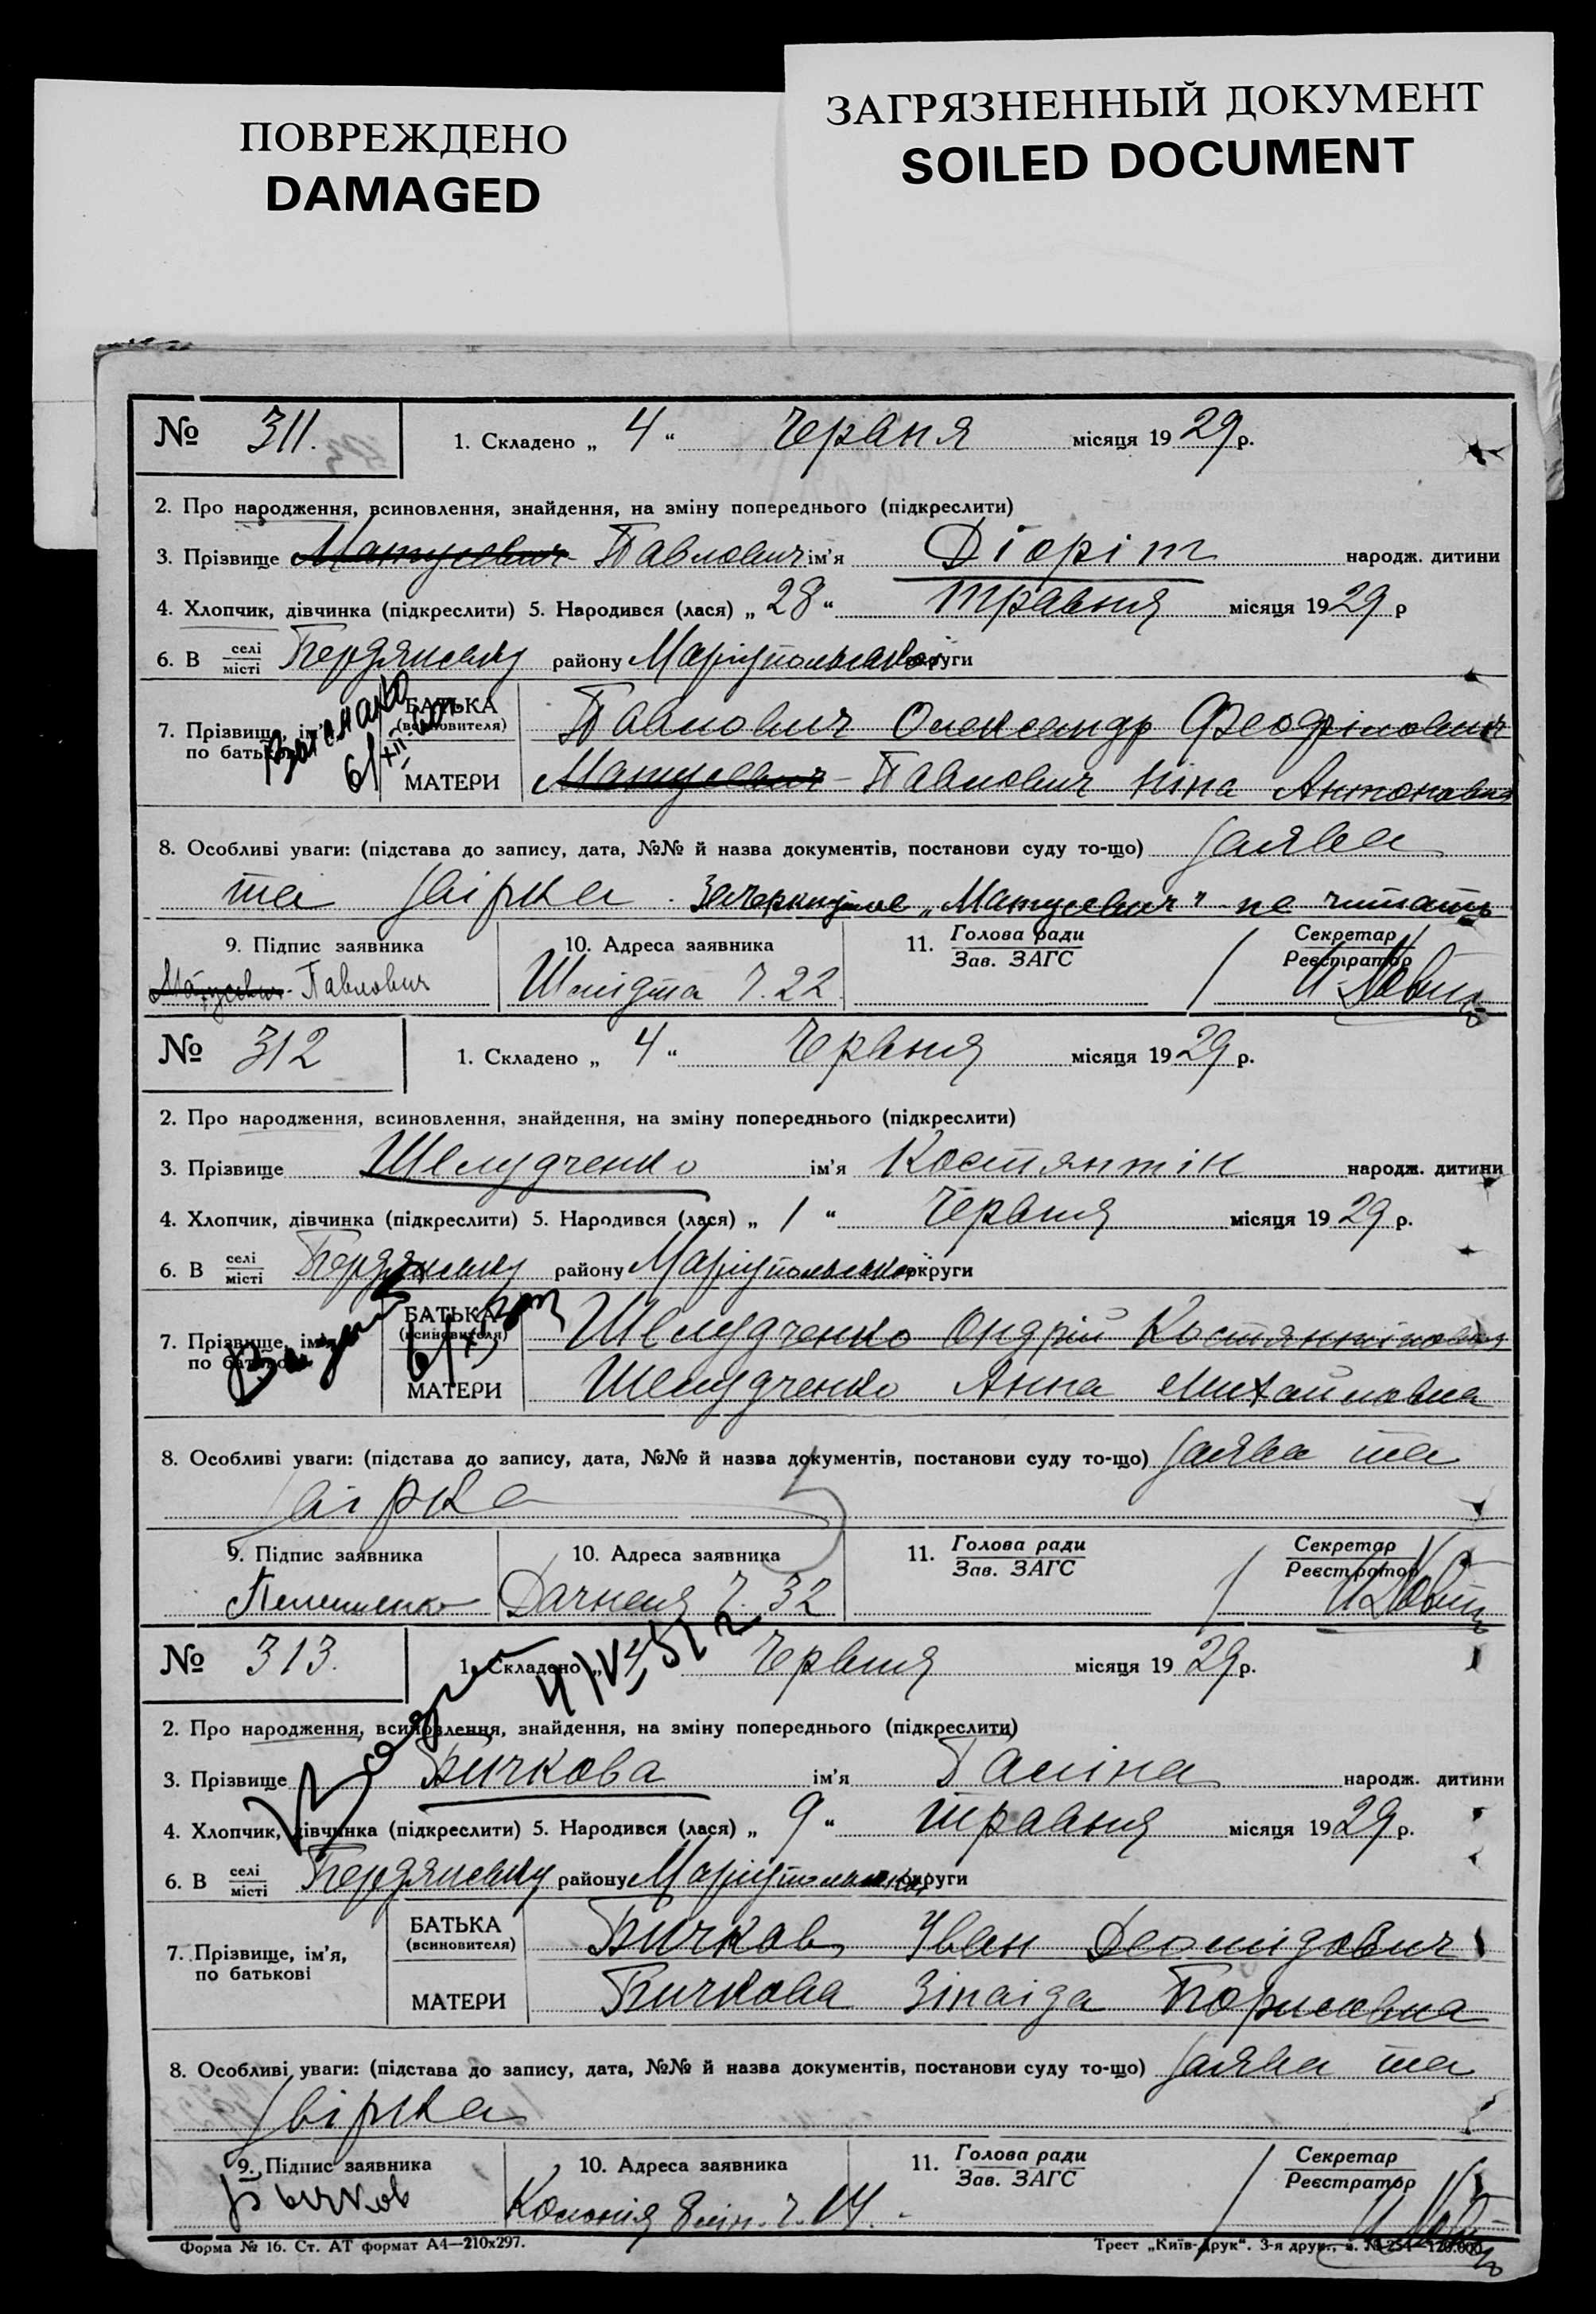 ПОВРЕЖДЕНО
DAMAGED
ЗАГРЯЗНЕННЫЙ ДОКУМЕНТ
SOILED DOCUMENT
№ 311. 1. Складено „ 4 “ червня місяця 19 29 р.
2. Про народження, всиновлення, знайдення, на зміну попереднього (підкреслити)
3. Прізвище Матусевич- Павлович ім'я Діоріт народж. дитини
4. Хлопчик, дівчинка (підкреслити) 5. Народився (лася) „ 28 “ травня місяця 19 29 р
6. В селі місті Бердянську району Маріупольської округи
7. Прізвище, ім'я, по батькові
БАТЬКА (всиновителя) Павлович Олександр
МАТЕРИ Матусевич - Павлович Ніна Антоновна
8. Особливі уваги: (підстава до запису, дата, №№ й назва документів, постанови суду то-що) заява
та звірка. Зачеркнутое „Матусевич" не читать
9. Підпис заявника 10. Адреса заявника 11. Голова ради Зав. ЗАГС Секретар Реєстратор
Матусевич- Павлович Шмідта ч. 22
№ 312 1. Складено „ 4 “ червня місяця 19 29 р.
2. Про народження, всиновлення, знайдення, на зміну попереднього (підкреслити)
3. Прізвище Шелудченко ім'я Костянтін народж. дитини
4. Хлопчик, дівчинка (підкреслити) 5. Народився (лася) „ 1 “ червня місяця 19 29 р.
6. В селі місті Бердянську району Маріупольської округи
7. Прізвище, ім'я, по батькові
БАТЬКА (всиновителя) Шелудченко Ондрій Костянтінович
МАТЕРИ Шелудченко Анна Михайловна
8. Особливі уваги: (підстава до запису, дата, №№ й назва документів, постанови суду то-що) заява та
звірка
9. Підпис заявника 10. Адреса заявника 11. Голова ради Зав. ЗАГС Секретар Реєстратор
Дачная ч. 32
№ 313. 1. Складено „ 4 червня місяця 19 29 р.
2. Про народження, всиновлення, знайдення, на зміну попереднього (підкреслити)
3. Прізвище Бичкова ім'я Галіна народж. дитини
4. Хлопчик, дівчинка (підкреслити) 5. Народився (лася) „ 9 “ травня місяця 19 29 р.
6. В селі місті Бердянську району Маріупольської округи
7. Прізвище, ім'я, по батькові
БАТЬКА (всиновителя) Бичков Іван Деомідович
МАТЕРИ Бичкова Зінаіда Борисовна
8. Особливі уваги: (підстава до запису, дата, №№ й назва документів, постанови суду то-що) заява та
звірка
9. Підпис заявника 10. Адреса заявника 11. Голова ради Зав. ЗАГС Секретар Реєстратор
Бычков Колонія 8 лін. ч. 14.
Форма № 16. Ст. АТ формат А4—210х297. Трест „Київ-Друк“. 3-я друк.,